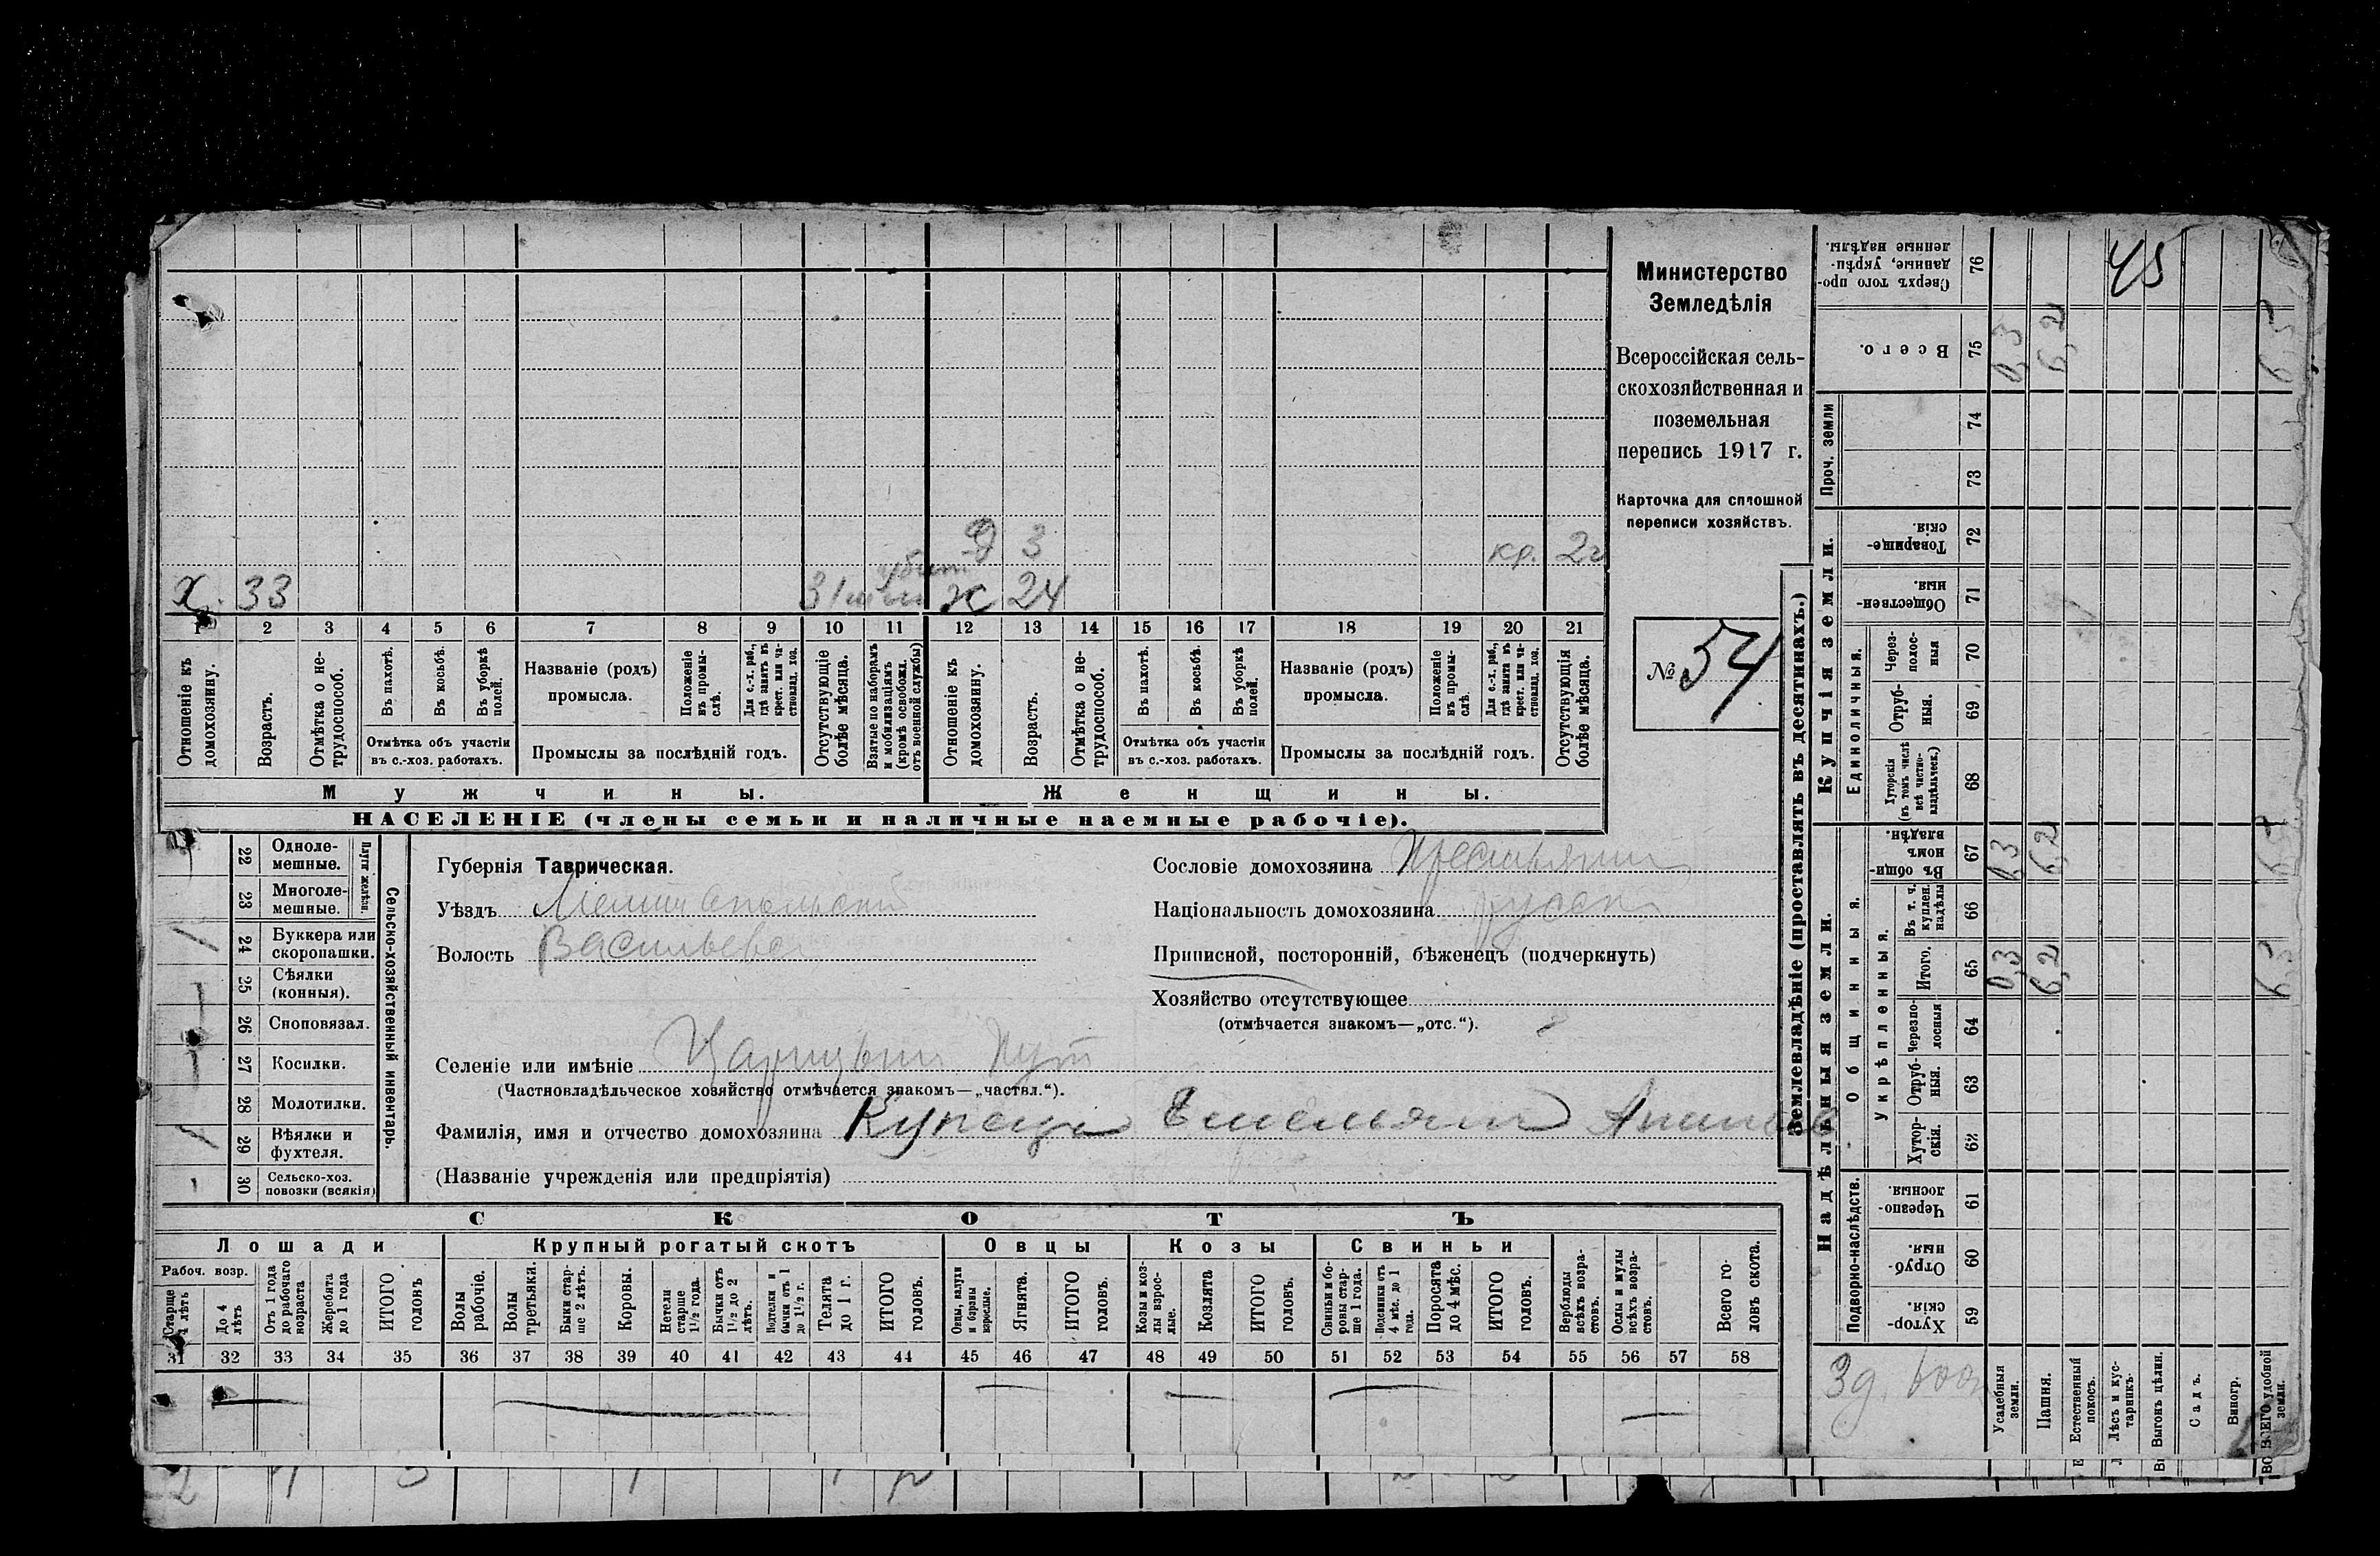 Сверхъ того про-
данные, укрѣп-
ленные надѣлы.
76
45
Всего.
75
0,3
6,2
6,5
Проч. земли
74
73
Министерство
Земледѣлія
Всероссійская сель-
скохозяйственная и
поземельная
перепись 1917 г.
Карточка для сплошной
переписи хозяйствъ.
№ 54
Д 3 кр. 2г
х. 33 ж 24
1 2 3 4 5 6 7 8 9 10 11 12 13 14 15 16 17 18 19 20 21
Отношеніе къ домохозяину.
Возрастъ.
Отмѣтка о не-трудоспособ.
Въ пахотѣ.
Въ косьбѣ.
Въ уборкѣ полей.
Отмѣтка объ участіи
въ с.-хоз. работахъ.
Названіе (родъ)
промысла.
Положеніе въ промы-слѣ.
Для с.-х. раб., гдѣ занятъ въ крест. или ча-стновлад. хоз.
Промыслы за послѣдній годъ.
Отсутствующіе болѣе мѣсяца.
Взятые по наборамъ и мобилизаціямъ (кромѣ освобожд. отъ военной службы)
Отношеніе къ домохозяину.
Возрастъ.
Отмѣтка о не-трудоспособ.
Въ пахотѣ.
Въ косьбѣ.
Въ уборкѣ полей.
Отмѣтка объ участіи
въ с.-хоз. работахъ.
Названіе (родъ)
промысла.
Положеніе въ промы-слѣ.
Для с.-х. раб., гдѣ занятъ въ крест. или ча-стновлад. хоз.
Промыслы за послѣдній годъ.
Отсутствующія болѣе мѣсяца.
Мужчины. Женщины.
НАСЕЛЕНІЕ (члены семьи и наличные наемные рабочіе).
22 Одноле-мешные.
23 Многоле-мешные.
Плуги желѣзн.
24 Буккера или скоропашки.
25 Сѣялки (конныя).
26 Сноповязал.
27 Косилки.
28 Молотилки.
29 Вѣялки и фухтеля.
30 Сельско-хоз. повозки (всякія)
Сельско-хозяйственный инвентарь.
Губернія Таврическая.
Уѣздъ Мелитопольский
Волость Васильевс
Селеніе или имѣніе Царицын Кут
(Частновладѣльческое хозяйство отмѣчается знакомъ—„частвл.“).
Фамилія, имя и отчество домохозяина Купец Емельян
(Названіе учрежденія или предпріятія)
Сословіе домохозяина Крестьянин
Національность домохозяина русск
Приписной, посторонній, бѣженецъ (подчеркнуть)
Хозяйство отсутствующее
(отмѣчается знакомъ—„отс.“).
СКОТЪ
Лошади Крупный рогатый скотъ Овцы Козы Свиньи
Рабоч. возр.
Старше 4 лѣтъ
До 4 лѣтъ
Отъ 1 года до рабочаго возраста
Жеребята до 1 года
ИТОГО головъ
Волы рабочіе.
Волы третьяки.
Быки стар-ше 2 лѣтъ.
Коровы.
Нетели старше 1½ года.
Бычки отъ 1½ до 2 лѣтъ.
Подтелки и бычки отъ 1 до 1½ г.
Телята до 1 г.
ИТОГО головъ.
Овцы, валухи и бараны взрослые.
Ягнята.
ИТОГО головъ.
Козы и коз-лы взрос-лые.
Козлята
ИТОГО головъ.
Свиньи и бо-ровы стар-ше 1 года.
Подсвинки отъ 4 мѣс. до 1 года.
Поросята до 4 мѣс.
ИТОГО головъ.
Верблюды всѣхъ возра-стовъ.
Ослы и мулы всѣхъ возра-стовъ.
Всего го-ловъ скота.
31 32 33 34 35 36 37 38 39 40 41 42 43 44 45 46 47 48 49 50 51 52 53 54 55 56 57 58
Землевладѣніе (проставлять въ десятинахъ.)
Купчія земли.
Товарище-скія. 72
Обществен-ныя. 71
Единоличныя.
Через-полос-ныя 70
Отруб-ныя. 69
Хуторскія (въ томъ числѣ всѣ частно-владѣльческ.) 68
Надѣльныя земли.
Общинныя.
Въ общин-номъ владѣн. 67
0,3
6,2
6,5
Укрѣпленныя.
Въ т. ч. куплен. надѣлы 66
Итого. 65
0,3
6,2
6,5
Черезпо-лосныя 64
Отруб-ныя. 63
Хутор-скія. 62
Подворно-наслѣдств.
Черезпо-лосныя. 61
Отруб-ныя. 60
Хутор-скія. 59
Усадебныя земли.
Пашня.
Естественный покосъ.
Лѣсъ и кус-тарникъ.
Выгонъ цѣлин.
Садъ.
Виногр.
ВСЕГО удобной земли.